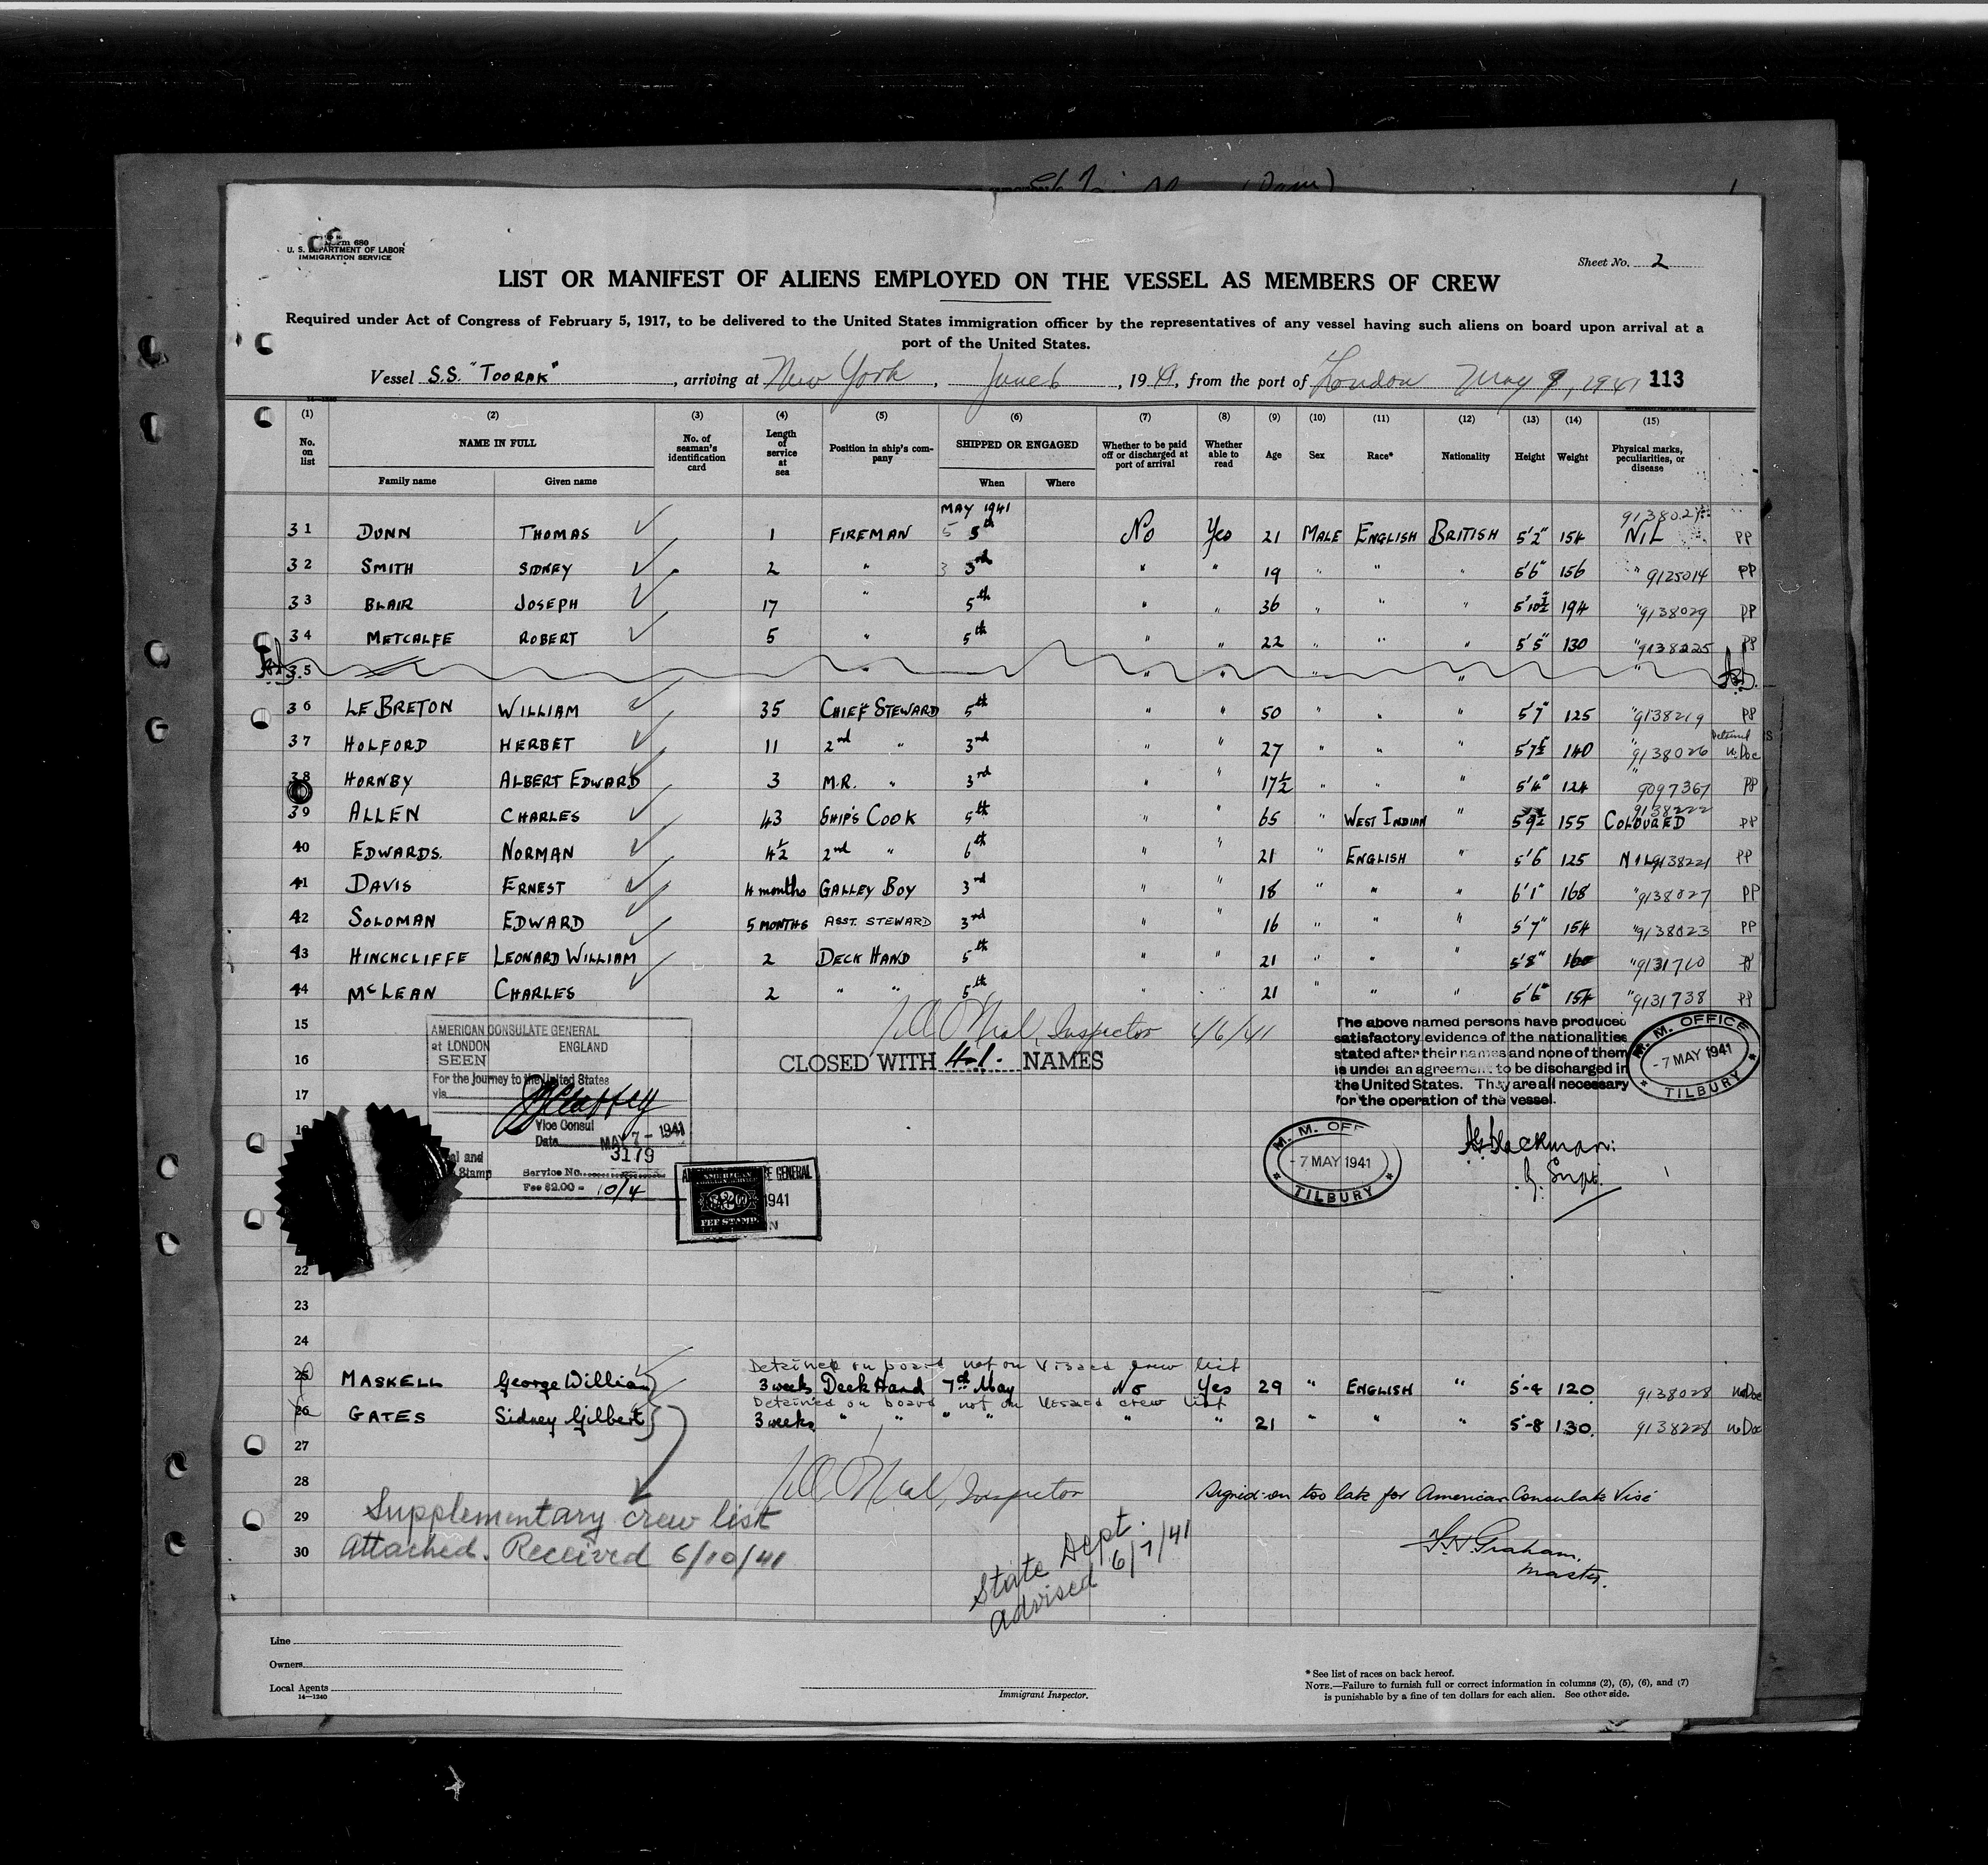 Form 680
U. S. DEPARTMENT OF LABOR
IMMIGRATION SERVICE
Sheet No. 2
LIST OR MANIFEST OF ALIENS EMPLOYED ON THE VESSEL AS MEMBERS OF CREW
Required under Act of Congress of February 5, 1917, to be delivered to the United States immigration officer by the representatives of any vessel having such aliens on board upon arrival at a
port of the United States.
Vessel S.S. "TOORAK", arriving at New York, June 6, 1941, from the port of London May 9, 1941 113
(1) (2) (3) (4) (5) (6) (7) (8) (9) (10) (11) (12) (13) (14) (15)
No. on list NAME IN FULL No. of seaman's identification card Length of service at sea Position in ship's company SHIPPED OR ENGAGED Whether to be paid off or discharged at port of arrival Whether able to read Age Sex Race* Nationality Height Weight Physical marks, peculiarities, or disease
Family name Given name When Where
MAY 1941 9138024
31 DUNN THOMAS 1 FIREMAN 5 5th No Yes 21 MALE ENGLISH BRITISH 5'2" 154 NIL PP
32 SMITH SIDNEY 2 " 3 3rd " " 19 " " " 5'6" 156 " 9125014 PP
33 BLAIR JOSEPH 17 " 5th " " 36 " " " 5'10½" 194 " 9138029 PP
34 METCALFE ROBERT 5 " 5th " " 22 " " " 5'5" 130 " 9138225 PP
35 " " " " " "
36 LE BRETON WILLIAM 35 CHIEF STEWARD 5th " " 50 " " " 5'7" 125 " 9138219 PP
Detained
37 HOLFORD HERBET 11 2nd " 3rd " " 27 " " " 5'7½" 140 " 9138026 no Doc
38 HORNBY ALBERT EDWARD 3 M.R. " 3rd " " 17½ " " " 5'4" 124 " 9097367 PP
9138222
39 ALLEN CHARLES 43 SHIP'S COOK 5th " " 65 " WEST INDIAN " 5'9½" 155 COLOURED PP
40 EDWARDS. NORMAN 4½ 2nd " 6th " " 21 " ENGLISH " 5'6" 125 NIL 9138221 PP
41 DAVIS ERNEST 4 months GALLEY BOY 3rd " " 18 " " " 6'1" 168 " 9138027 PP
42 SOLOMAN EDWARD 5 MONTHS ASST. STEWARD 3rd " " 16 " " " 5'7" 154 " 9138023 PP
43 HINCHCLIFFE LEONARD WILLIAM 2 DECK HAND 5th " " 21 " " " 5'8" 160 " 9131710 PP
44 McLEAN CHARLES 2 " " 5th " " 21 " " " 5'6" 154 " 9131738 PP
15 O'Neal, Inspector 6/6/41
16 CLOSED WITH 41. NAMES
17
AMERICAN CONSULATE GENERAL
at LONDON ENGLAND
SEEN
For the journey to the United States
via
Vice Consul
Date MAY 7 - 1941
3179
Service No.
Fee $2.00 = 10/4
Stamp
AMERICAN CONSULATE GENERAL
1941
FEE STAMP
The above named persons have produced
satisfactory evidence of the nationalities
stated after their names and none of them
is under an agreement to be discharged in
the United States. They are all necessary
for the operation of the vessel.
M. M. OFFICE
- 7 MAY 1941
TILBURY
M. M. OFF
- 7 MAY 1941
TILBURY
Supt.
22
23
24
Detained on board not on Visaed crew list
25 MASKELL George William 3 weeks Deck Hand 7th May No Yes 29 " ENGLISH " 5-4 120 9138028 no Doc
Detained on board not on Visaed crew list
26 GATES Sidney Gilbert 3 weeks " " " " " " 21 " " " 5-8 130. 9138228 no Doc
27
28 O'Neal, Inspector Signed-on too late for American Consulate Visé
29 Supplementary crew list
30 Attached. Received 6/10/41
State Dept.
Advised 6/7/41
Graham,
Master.
Line
Owners
Local Agents
14—1240
Immigrant Inspector.
* See list of races on back hereof.
NOTE.—Failure to furnish full or correct information in columns (2), (5), (6), and (7)
is punishable by a fine of ten dollars for each alien. See other side.